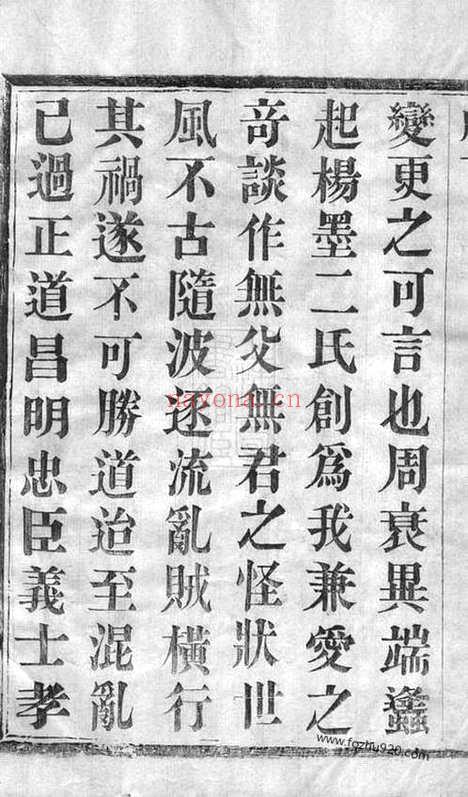 變更之可言也周衰異端蠭
起楊墨二氏創爲我兼愛之
竒談作無父無君之怪狀世
風不古隨波逐流亂賊橫行
其禍遂不可勝道迨至混亂
已過正道昌明忠臣義士孝
nayona.cn
www.fozhu920.com